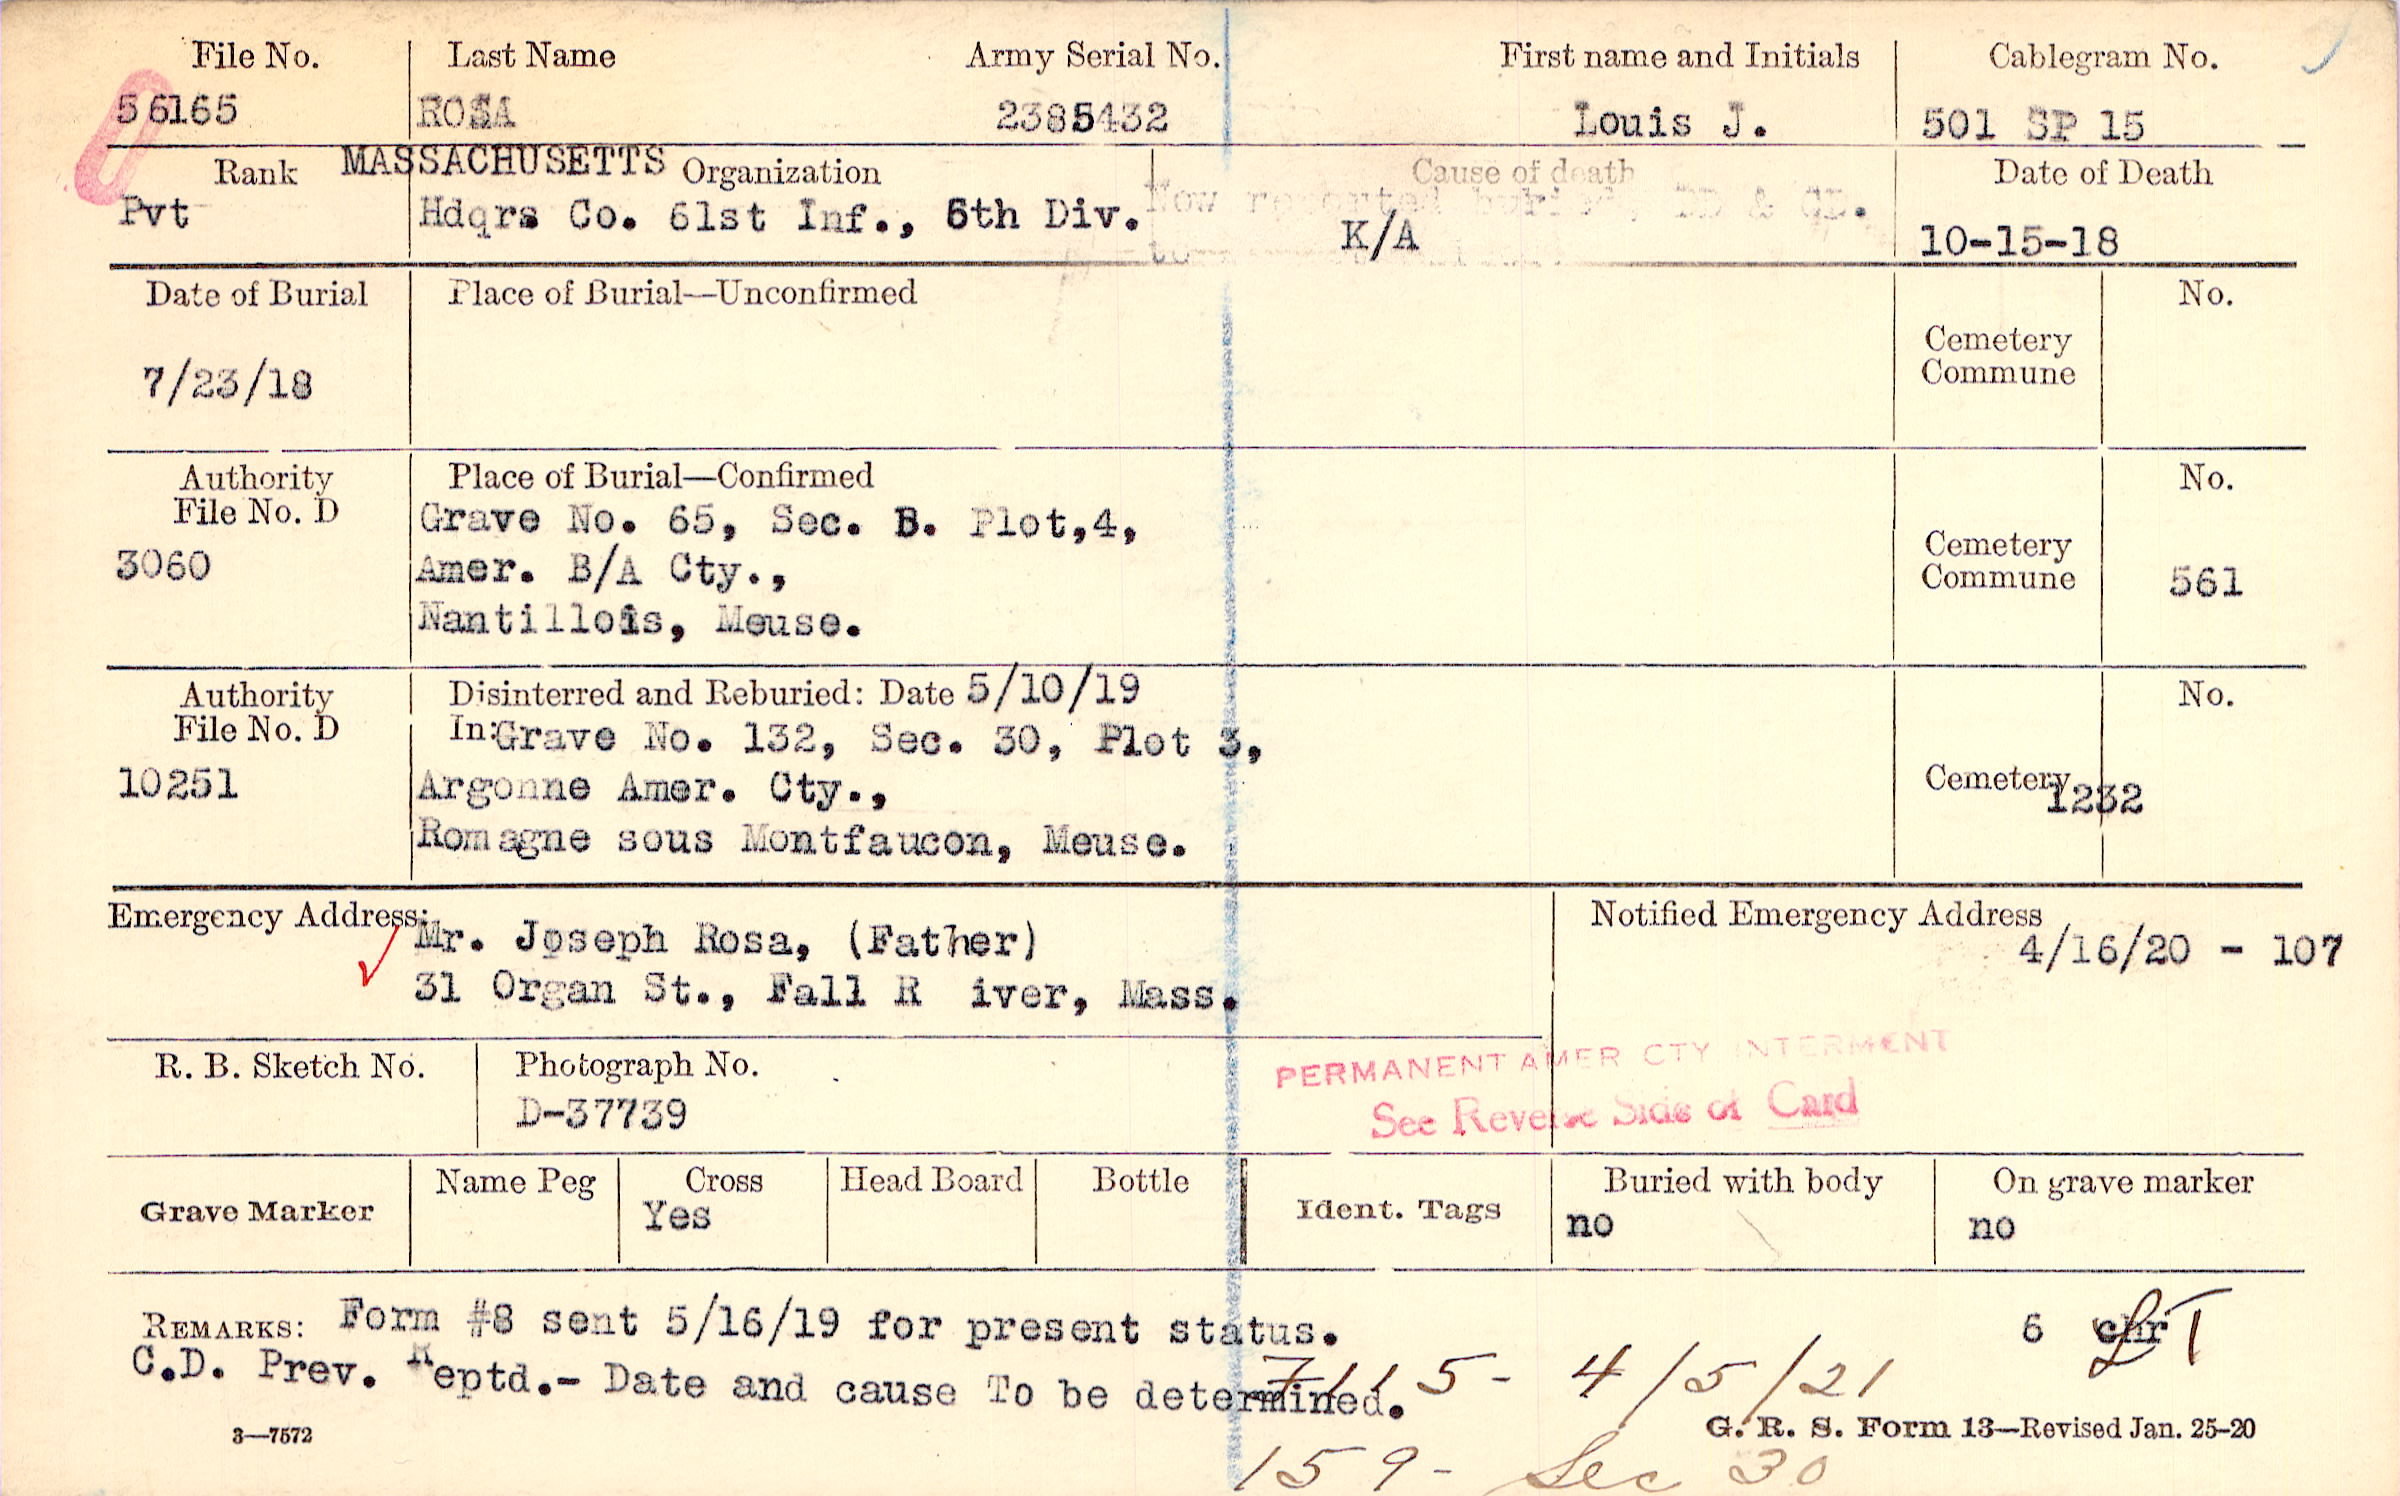 File No.
Last Name
Army Serial No.
First name and Initials
Cablegram No.
56165
ROSA
2385432
Louis J.
501 SP 15
Rank
MASSACHUSETTS
Organization
Cause of death
Date of Death
Pvt
Hdqrs Co. 61st Inf., 5th Div.
Now reported buried,
K/A
10-15-18
Date of Burial
Place of Burial—Unconfirmed
No.
Cemetery
Commune
7/23/18
Authority
File No. D
Place of Burial—Confirmed
No.
3060
Grave No. 65, Sec. B. Plot,4,
Amer. B/A Cty.,
Nantillois, Meuse.
Cemetery
Commune
561
Authority
File No. D
Disinterred and Reburied: Date 5/10/19
No.
10251
In: Grave No. 132, Sec. 30, Plot 3,
Argonne Amer. Cty.,
Romagne sous Montfaucon, Meuse.
Cemetery
1232
Emergency Address:
Mr. Joseph Rosa, (Father)
31 Organ St., Fall R iver, Mass.
Notified Emergency Address
4/16/20 - 107
R. B. Sketch No.
Photograph No.
D-37739
PERMANENT AMER CTY INTERMENT
See Reverse Side of Card
Grave Marker
Name Peg
Cross
Yes
Head Board
Bottle
Ident. Tags
Buried with body
no
On grave marker
no
REMARKS: Form #8 sent 5/16/19 for present status.
6 chr
C.D. Prev. Reptd.- Date and cause To be determined.
7115- 4/5/21
3—7572
G. R. S. Form 13—Revised Jan. 25-20
159- Sec 30